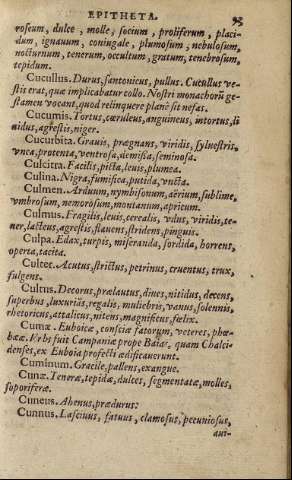 EPITHETA. 93
roseum, dulce, molle, socium, proliferum, placi-
dum, ignauum, coniugale, plumosum, nebulosum,
nocturnum, tenerum, occultum, gratum, tenebrosum,
tepidum.
Cucullus. Durus, santonicus, pullus. Cucullus ve-
stis erat, quæ implicabatur collo. Nostri monachorũ ge-
stamen vocant, quod relinquere planè sit nefas.
Cucumis. Tortus, cœruleus, anguineus, intortus, li
uidus, agrestis, niger.
Cucurbita. Grauis, prægnans, viridis, syluestris,
vnca, protenta, ventrosa, demissa, seminosa.
Culcitra. Facilis, picta, leuis, plumea.
Culina. Nigra, fumifica, putida, vncta.
Culmen. Arduum, nymbisonum, aërium, sublime,
vmbrosum, nemorosum, montanum, apricum.
Culmus. Fragilis, leuis, cerealis, vdus, viridis, te-
ner, lacteus, agrestis, flauens, stridens, pinguis.
Culpa. Edax, turpis, miseranda, sordida, horrens,
operta, tacita.
Culter. Acutus, strictus, petrinus, cruentus, trux,
fulgens.
Cultus. Decorus, prælautus, diues, nitidus, decens,
superbus, luxuriãs, regalis, muliebris, vanus, solennis,
rhetoricus, attalicus, nitens, magnificus, fœlix.
Cumæ. Euboicæ, consciæ fatorum, veteres, phœ-
bææ. Vrbs fuit Campaniæ prope Baias, quam Chalci-
denses, ex Euboia profecti ædificauerunt.
Cuminum. Gracile, pallens, exangue.
Cunæ. Teneræ, tepidæ, dulces, segmentatæ, molles,
soporiferæ.
Cuneus. Ahenus, prædurus:
Cunnus. Lasciuus, fatuus, clamosus, pecuniosus,
aui-